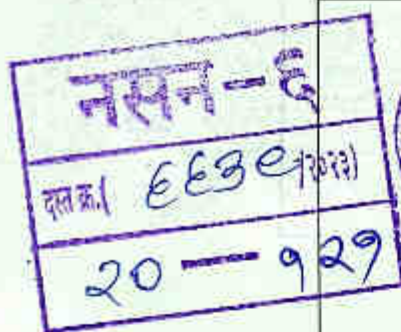 नसन-६
दस्त क्र.( ६६३९ /२०२३)
२० — १२१